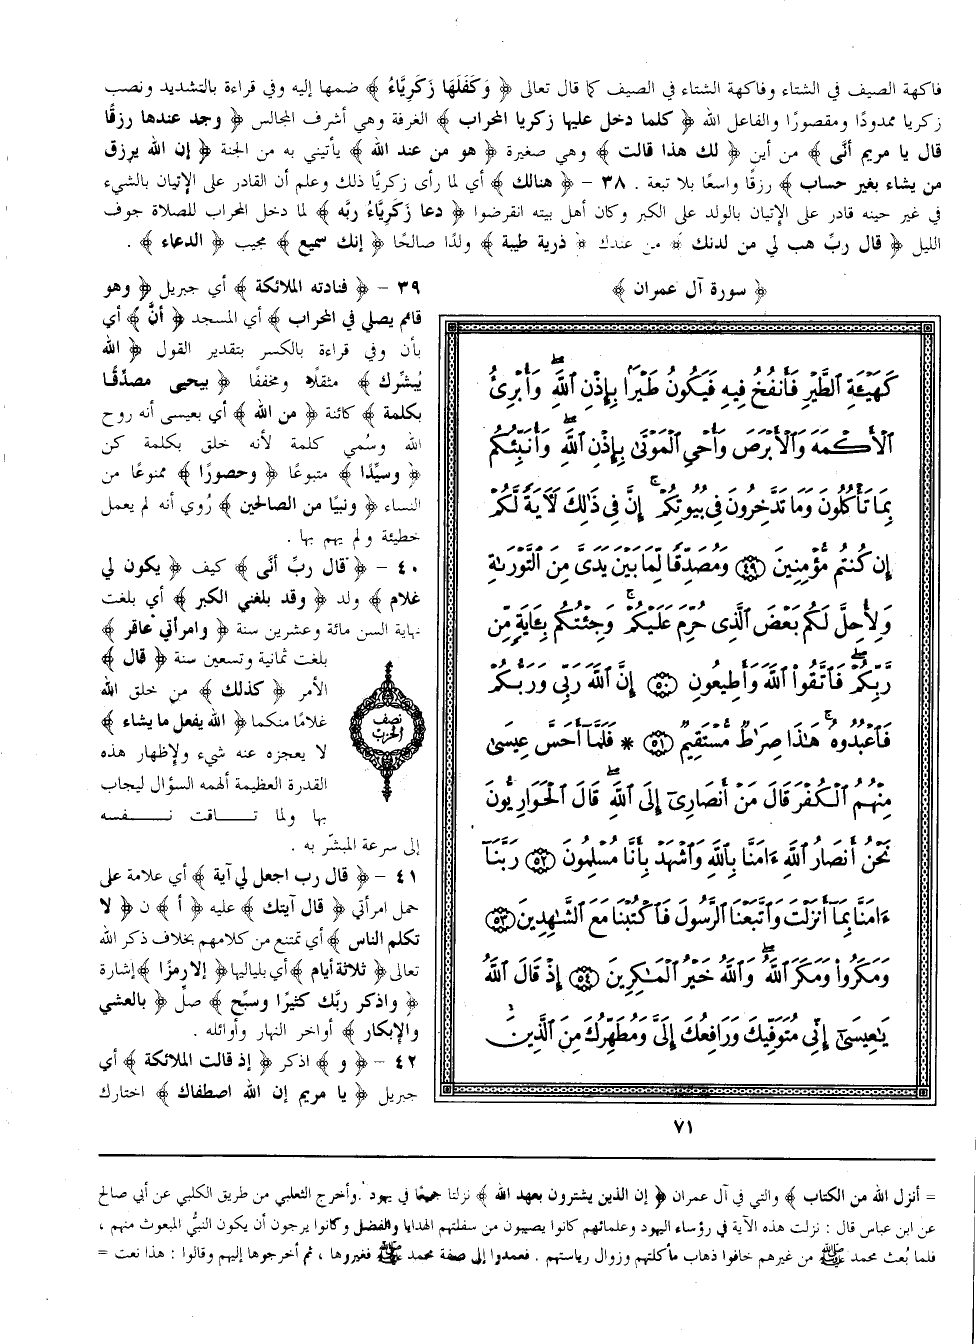 فاكهة الصيف في الشتاء وفاكهة الشتاء في الصيف كما قال تعالى ﴿ وَكَفَلَهَا زَكَرِيَّاءُ ﴾ ضمها إليه وفي قراءة بالتشديد ونصب
زكريا ممدودًا ومقصورًا والفاعل الله ﴿ كلما دخل عليها زكريا المحراب ﴾ الغرفة وهي أشرف المجالس ﴿ وجد عندها رزقًا
قال يا مريم أنَّى ﴾ من أين ﴿ لك هذا قالت ﴾ وهي صغيرة ﴿ هو من عند الله ﴾ يأتيني به من الجنة ﴿ إن الله يرزق
من يشاء بغير حساب ﴾ رزقًا واسعًا بلا تبعة . ٣٨ – ﴿ هنالك ﴾ أي لما رأى زكريَّا ذلك وعلم أن القادر على الإتيان بالشيء
في غير حينه قادر على الإتيان بالولد على الكبر وكان أهل بيته انقرضوا ﴿ دعا زَكَرِيَّاءُ ربَّه ﴾ لما دخل المحراب للصلاة جوف
الليل ﴿ قال ربِّ هب لي من لدنك ﴾ من عندك ﴿ ذرية طيبة ﴾ ولدًا صالحًا ﴿ إنك سميع ﴾ مجيب ﴿ الدعاء ﴾ .
﴿ سورة آل عمران ﴾
كَهَيْـَٔةِ ٱلطَّيْرِ فَأَنفُخُ فِيهِ فَيَكُونُ طَيْرًۢا بِإِذْنِ ٱللَّهِۖ وَأُبْرِئُ
ٱلْأَكْمَهَ وَٱلْأَبْرَصَ وَأُحْىِ ٱلْمَوْتَىٰ بِإِذْنِ ٱللَّهِۖ وَأُنَبِّئُكُم
بِمَا تَأْكُلُونَ وَمَا تَدَّخِرُونَ فِى بُيُوتِكُمْۚ إِنَّ فِى ذَٰلِكَ لَأَيَةً لَّكُمْ
إِن كُنتُم مُّؤْمِنِينَ ٤٩ وَمُصَدِّقًا لِّمَا بَيْنَ يَدَىَّ مِنَ ٱلتَّوْرَىٰةِ
وَلِأُحِلَّ لَكُم بَعْضَ ٱلَّذِى حُرِّمَ عَلَيْكُمْۚ وَجِئْتُكُم بِـَٔايَةٍ مِّن
رَّبِّكُمْۖ فَٱتَّقُوا۟ ٱللَّهَ وَأَطِيعُونِ ٥٠ إِنَّ ٱللَّهَ رَبِّى وَرَبُّكُمْ
فَٱعْبُدُوهُۚ هَٰذَا صِرَٰطٌ مُّسْتَقِيمٌ ٥١ * فَلَمَّآ أَحَسَّ عِيسَىٰ
مِنْهُمُ ٱلْكُفْرَ قَالَ مَنْ أَنصَارِىٓ إِلَى ٱللَّهِۖ قَالَ ٱلْحَوَارِيُّونَ
نَحْنُ أَنصَارُ ٱللَّهِ ءَامَنَّا بِٱللَّهِ وَٱشْهَدْ بِأَنَّا مُسْلِمُونَ ٥٢ رَبَّنَآ
ءَامَنَّا بِمَآ أَنزَلْتَ وَٱتَّبَعْنَا ٱلرَّسُولَ فَٱكْتُبْنَا مَعَ ٱلشَّٰهِدِينَ ٥٣
وَمَكَرُوا۟ وَمَكَرَ ٱللَّهُۖ وَٱللَّهُ خَيْرُ ٱلْمَٰكِرِينَ ٥٤ إِذْ قَالَ ٱللَّهُ
يَٰعِيسَىٰٓ إِنِّى مُتَوَفِّيكَ وَرَافِعُكَ إِلَىَّ وَمُطَهِّرُكَ مِنَ ٱلَّذِينَ
٧١
٣٩ – ﴿ فنادته الملائكة ﴾ أي جبريل ﴿ وهو
قائم يصلي في المحراب ﴾ أي المسجد ﴿ أنَّ ﴾ أي
بأن وفي قراءة بالكسر بتقدير القول ﴿ الله
يُبشرك ﴾ مثقلًا ومخففًا ﴿ بيحيى مصدِّقًا
بكلمة ﴾ كائنة ﴿ من الله ﴾ أي بعيسى أنه روح
الله وسُمي كلمة لأنه خلق بكلمة كن
﴿ وسيِّدًا ﴾ متبوعًا ﴿ وحصورًا ﴾ ممنوعًا من
النساء ﴿ ونبيًا من الصالحين ﴾ رُوي أنه لم يعمل
خطيئة ولم يهم بها .
٤٠ – ﴿ قال ربِّ أنَّى ﴾ كيف ﴿ يكون لي
غلام ﴾ ولد ﴿ وقد بلغني الكبر ﴾ أي بلغت
نهاية السن مائة وعشرين سنة ﴿ وامرأتي عاقر ﴾
بلغت ثمانية وتسعين سنة ﴿ قال ﴾
الأمر ﴿ كذلك ﴾ من خلق الله
غلامًا منكما ﴿ الله يفعل ما يشاء ﴾
لا يعجزه عنه شيء ولإظهار هذه
القدرة العظيمة ألهمه السؤال ليجاب
بها ولما تاقت نفسه
إلى سرعة المبشّر به .
نصف
الحزب
٤١ – ﴿ قال رب اجعل لي آية ﴾ أي علامة على
حمل امرأتي ﴿ قال آيتك ﴾ عليه ﴿ أ ﴾ ن ﴿ لا
تكلم الناس ﴾ أي تمتنع من كلامهم بخلاف ذكر الله
تعالى ﴿ ثلاثة أيام ﴾ أي بلياليها ﴿ إلا رمزًا ﴾ إشارة
﴿ واذكر ربَّك كثيرًا وسبِّح ﴾ صلِّ ﴿ بالعشي
والإبكار ﴾ أواخر النهار وأوائله .
٤٢ – ﴿ و ﴾ اذكر ﴿ إذ قالت الملائكة ﴾ أي
جبريل ﴿ يا مريم إن الله اصطفاك ﴾ اختارك
= أنزل الله من الكتاب ﴾ والتي في آل عمران ﴿ إن الذين يشترون بعهد الله ﴾ نزلتا جميعًا في يهود . وأخرج الثعلبي من طريق الكلبي عن أبي صالح
عن ابن عباس قال : نزلت هذه الآية في رؤساء اليهود وعلمائهم كانوا يصيبون من سفلتهم الهدايا والفضل وكانوا يرجون أن يكون النبيُّ المبعوث منهم ،
فلما بُعث محمد ﷺ من غيرهم خافوا ذهاب مأكلتهم وزوال رياستهم . فعمدوا إلى صفة محمد ﷺ فغيروها ، ثم أخرجوها إليهم وقالوا : هذا نعت =